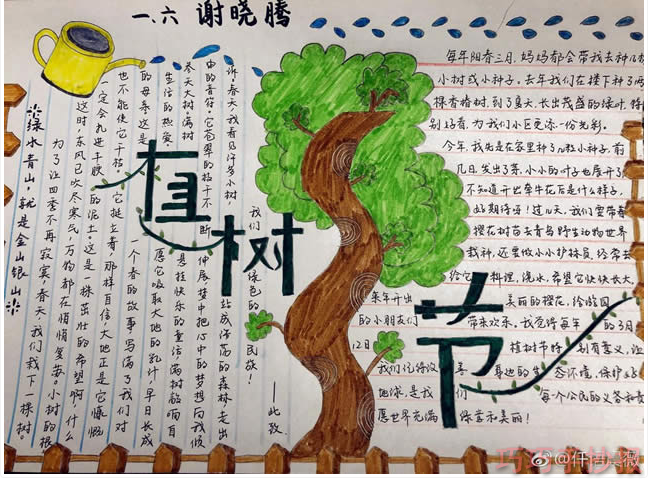 一.六 谢晓腾
植树节
绿水青山,就是金山银山
为了让四季不再寂寞,春天,我们栽下一棵树。
这时,东风已吹尽寒气,万物都在悄悄复苏。小树的根
一定会扎进千肢的泥土。这是一株茁壮的希望啊,什么
也不能使它干枯。它挺立着,那样自信,大地正是它慷慨
的母亲。这是一个春的故事,写满了我们对
生活的热爱。愿它吸取大地的乳汁,早日长成
参天大树,满树悬挂快乐的童话,满树
中的音符。它苍翠的枝干不断伸展,梦中把心中的梦想向我倾
诉。春天,我看见许多小树,站成浩荡的森林,走出
我们绿色的民族!
——此致
每年阳春三月,妈妈都会带我去种几
小树或小种子。去年我们在楼下种了两
棵香椿树,到了夏天,长出茂盛的绿叶,特
别好看,为我们小区更添一份光彩。
今年,我先是在家里种了几粒小种子,前
几日,发出了芽,小小的叶子也展开了
不知道开出牵牛花后是什么样子,
好期待呀!过几天,我们要带着
樱花树苗去青岛野生动物世界
栽种,还要做小小护林员,经常去
给它料理,浇水,希望它快快长大,
来年开出美丽的樱花,给游园
的小朋友们带来欢乐。我觉得每年的3月
12日植树节特别有意义,让
我们保持身边的生态环境,保护
地球,是我们每个公民的义务和责
愿世界充满绿意和美丽!